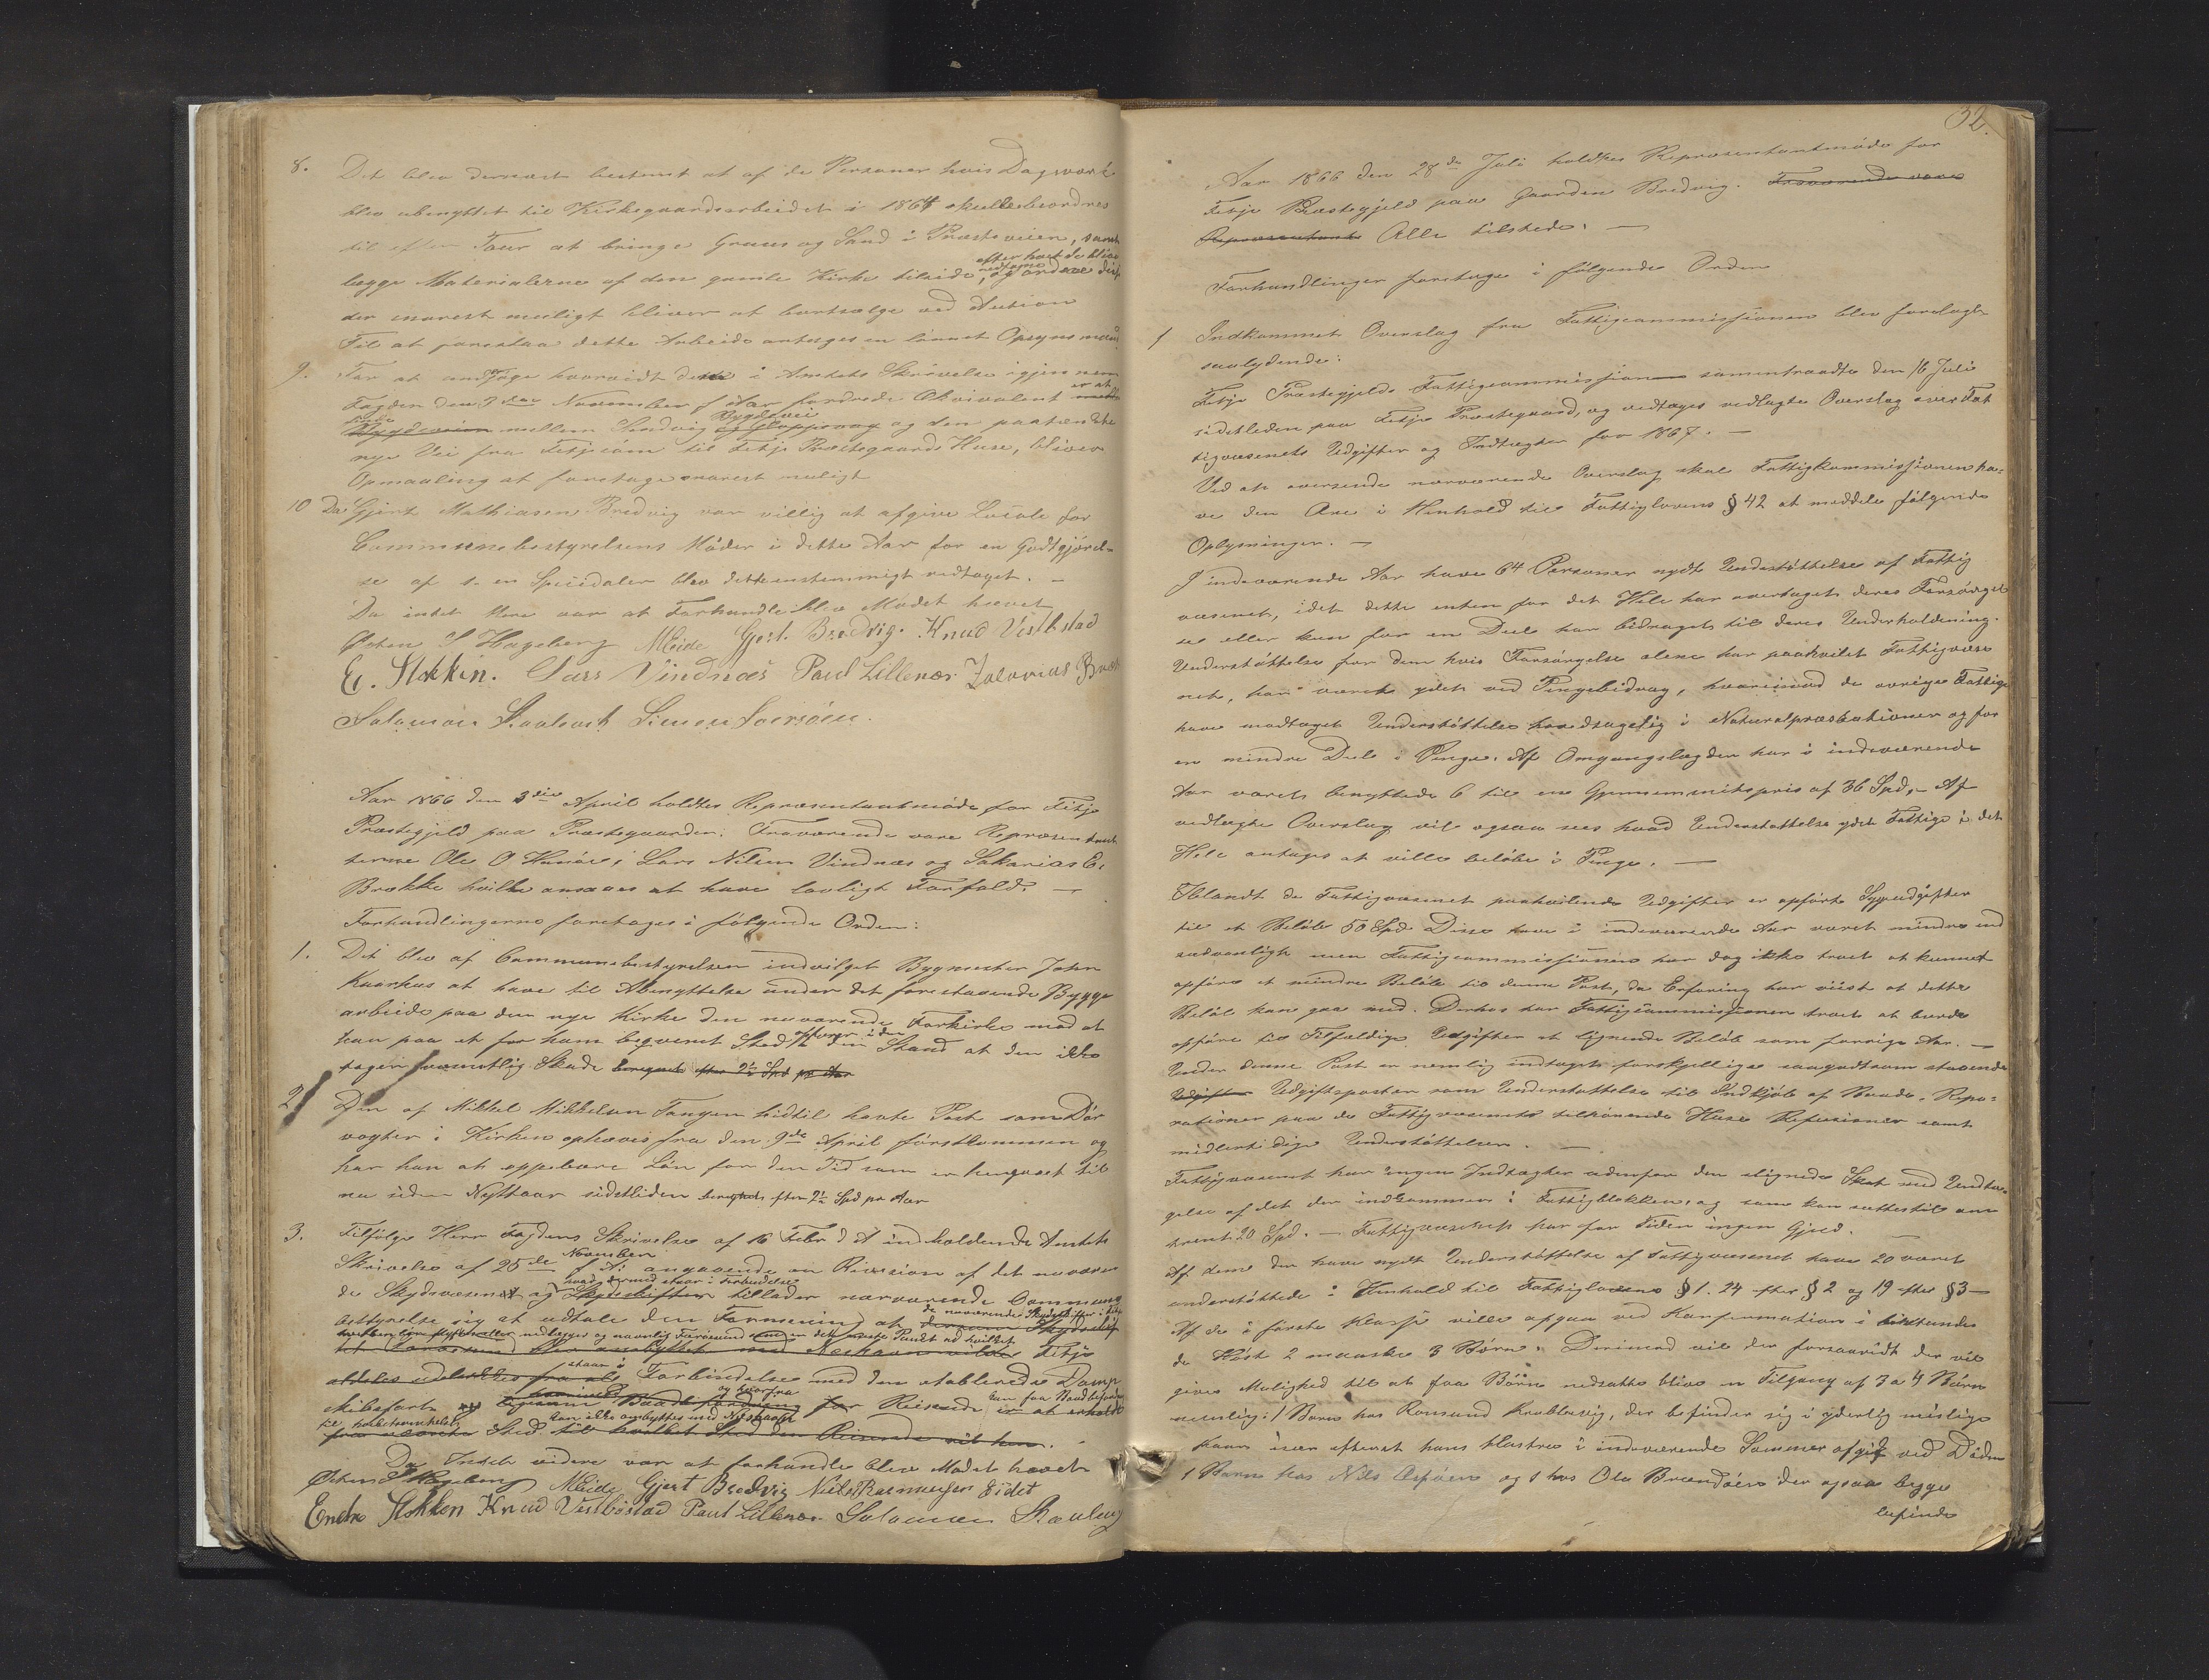 8. Det blev dernæst bestemt at af de Personer hvis Dagværk
blev ubenyttet til Kirkegaardsarbeidet i 1864 skulle beordres
til efter Tour at bringe Gruus og Sand i Præsteveien, samt
efter hvert de blive
lægge Materialerne af den gamle Kirke tilside, nedtagne og ordne disse
der snarest muligt bliver at bortsælge ved Auction
Til at forestaa dette Arbeide antages en lønnet Opsynsmand
9. For at undersøge hvorvidt dette i Amtets Skrivelse igjennem
Fogden den 7de November f Aar fordrede Ækvivalent er at
Bygdevei
Bygdeveien mellem Sandvig og Gloppevaag og den paatænkte
nye Vei fra Fitjesøen til Fitje Præstegaards Huse, bliver
Opmaaling at foretage snarest muligt
10 Da Gjert Mathiasen Bredvig var villig at afgive Locale for
Communebestyrelsens Møder i dette Aar for en Godtgjørel-
se af 1. en Speciedaler blev dette enstemmigt vedtaget. –
Da intet Mere var at Forhandle blev Mødet hævet
Østen S Hageberg MEide Gjert. Bredvig. Knud Vestbstad
E. Stokken. Lars Vindnæs Paul Lillenes Zakarias Bræk
Salamon Raaheurt Simen Iversøen.
Aar 1866 den 3die April holdtes Repræsentantmøde for Fitje
Præstegjeld paa Præstegaarden. Fraværende vare Repræsentan
terne Ole O Hanøe, Lars Nilsen Vindnæs og Sakarias E.
Brække hvilke ansaaes at have lovligt Forfald. –
Forhandlingerne foretages i følgende Orden:
1. Det blev af Communebestyrelsen indvilget Bygmester John
Kaarhus at have til Afbenyttelse under det forestaaende Bygge
arbeide paa den nye Kirke den nuværende Forkirke mod at
opfører i den
han paa et for ham beqvemt Sted den Stand at den ikke
tager væsentlig Skade beregnet efter 2½ Spd pr Aar
2. Den af Mikkel Mikkelsen Tangen hidtil havte Post som Dør
vogter i Kirken ophæves fra den 9de April førstkommen og
har han at oppebære Løn for den Tid som er hengaaet til
nu siden Nyttaar sidstleden beregnet efter 2½ Spd pr Aar
3. Tilfølge Herr Fogdens Skrivelse af 16 Febr d A indholdende Amtets
November
Skrivelse af 25de f A: angaaende en Revision af det nuværen
hvad dermed staar i Forbindelse
de Skydsvæsenet og Skydsskifter tillader nærværende Commune
bestyrelse sig at udtale den Formening at
de nuværende Skydsskifter i
nedlægger og navnlig Færøsund som er det næste Punct ad hvilket
Fitje
staar i
Forbindelse med den etablerede Damp
og hvorfra
skibsfart og Reisende kan faa Nødtørftig
kan ikke ombyttes med Næshavn
Sted til hvilket Sted den Reisende vil hen.
Da Intet videre var at forhandle blev Mødet hævet
Østen S Hageberg MEide Gjert Bredvig Niels Rasmussen Eidet
Endre Stokken Knud Vestbøstad Paul Lillenes Salamon Raaheug
32.
Aar 1866 den 28de Juli holdtes Repræsentantmøde for
Fitje Præstegjeld paa Gaarden Bredvig. Fraværende vare
Repræsentant Alle tilstede. –
Forhandlinger foretages i følgende Orden
1 Indkommet Overslag fra Fattigcommissionen blev forelagt
saalydende:
Fitje Præstegjelds Fattigcommission samentraadte den 16 Juli
sidstleden paa Fitje Præstegaard, og vedtoges vedlagte Overslag over Fat
tigvæsenets Udgifter og Indtægter for 1867. –
Ved at oversende nærværende Overslag skal Fattigkommissionen ha-
ve den Ære i Henhold til Fattiglovens § 42 at meddele følgende
Oplysninger. –
I indeværende Aar have 64 Personer nydt Understøttelse af Fattig
væsenet, idet dette enten for det Hele har overtaget deres Forsørgel
se eller kun for en Deel har bidraget til deres Underholdning.
Understøttelse for dem hvis Forsørgelse alene har paahvilet Fattigvæse
net, har været ydet ved Pengebidrag, hvorimod de øvrige Fattige
have modtaget Understøttelse hovedsagelig i Naturalpræstationer og for
en mindre Deel i Penge. Af Omgangslægden har i indeværende
Aar været benyttede 6 til en Gjennemsnitspris af 36 Spd. – Af
vedlagte Overslag vil ogsaa sees hvad Understøttelse ydet Fattige i det
Hele antages at ville beløbe i Penge. –
Iblandt de Fattigvæsenet paahvilende Udgifter er opført Sygeudgifter
til et Beløb 50 Spd. Disse have i indeværende Aar været mindre end
sædvanligt men Fattigcommissionen har dog ikke troet at kunne
opføre et mindre Beløb til denne Post, da Erfaring har viist at dette
Beløb kan gaa med. Derhos har Fattigcommissionen troet at burde
opføre til Tilfældige Udgifter et lignende Beløb som forrige Aar. –
Under denne Post er nemlig indtaget forskjellige saagodtsom staaende
Udgifter Udgiftsposter som Understøttelse til Indkjøb af Baade. Repa-
rationer paa de Fattigvæsenet tilhørende Huse Refusioner samt
midlertidige Understøttelser. –
Fattigvæsenet har ingen Indtægter udenfor den alignede Skat med Undta-
gelse af det der indkommer i Fattigblokken, og som kan sættes til om
trent 20 Spd. – Fattigvæsenet har for Tiden ingen Gjeld.
Af dem der have nydt Understøttelse af Fattigvæsenet have 20 været
understøttede i Henhold til Fattiglovens § 1. 24 efter § 2 og 19 efter § 3 –
Af de i første Klasse ville afgaa ved Konfirmation i tilstunden
de Høst 2 maaske 3 Børn. Derimod vil der forsaavidt der vil
gives Mulighed til at faa Børn nedsatte blive en Tilgang af 3 a 4 Børn
nemlig: 1 Barn hos Ransund Krabbevig, der befinder sig i yderlig mislige
Kaar især efterat hans Hustru i indeværende Sommer afgik ved Døden
1 Barn hos Nils Aspøen og 1 hos Ole Brandøen der ogsaa begge
befinde